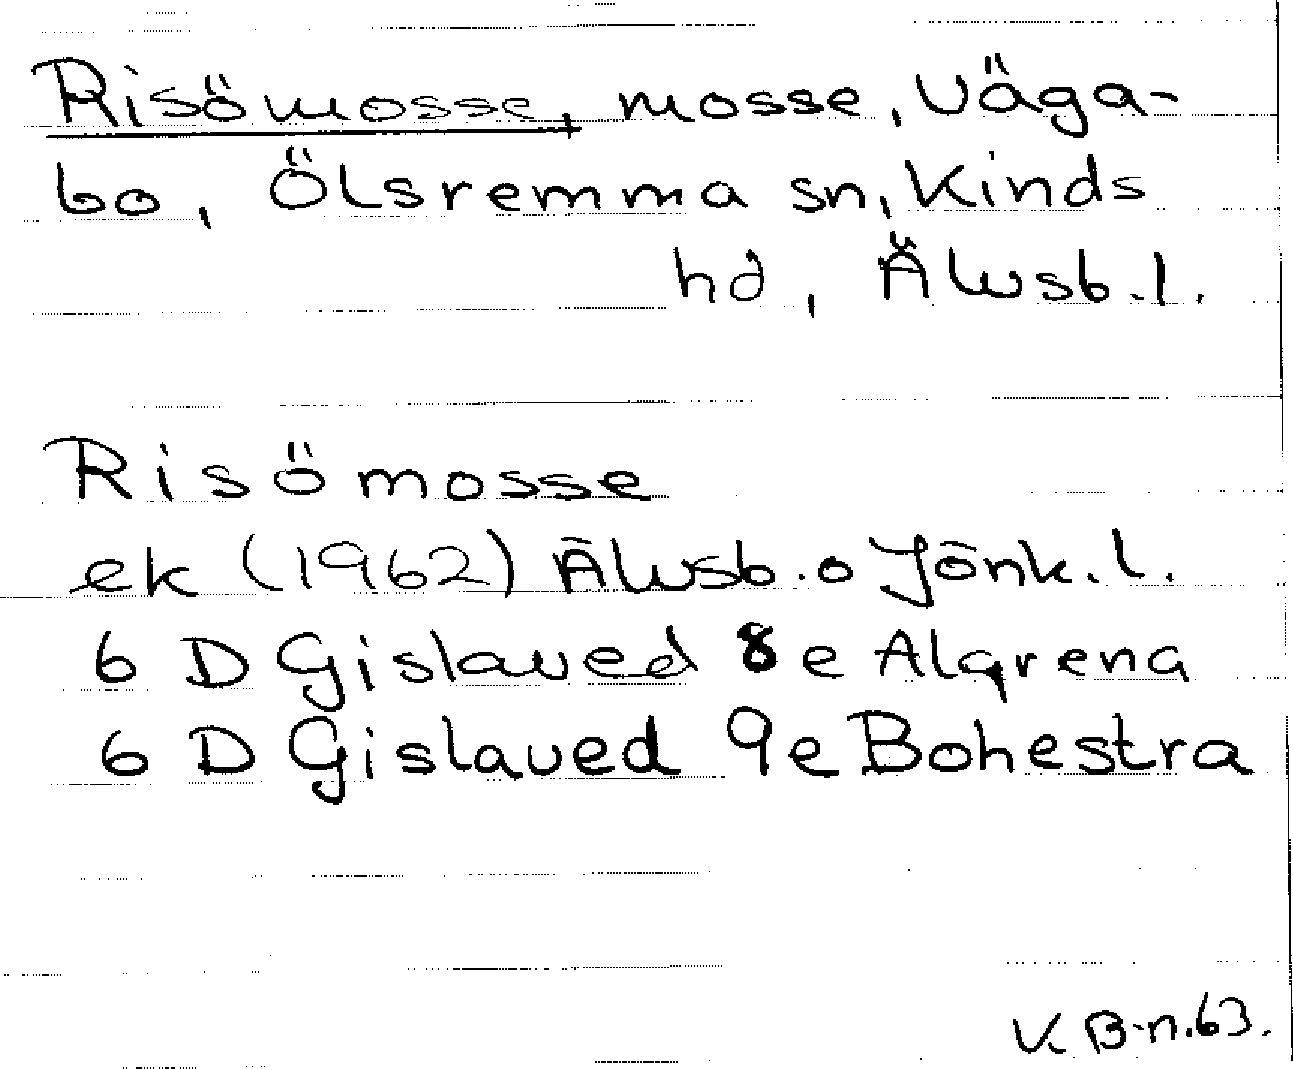 Risömosse, mosse, Väga-
bo, Ölsremma sn, Kinds
hd, Älvsb.l.
Risömosse
ek (1962) Älvsb. o Jönk. l.
6 D Gislaved 8e Algrena
6 D Gislaved 9e Bohestra
K B-n.63.